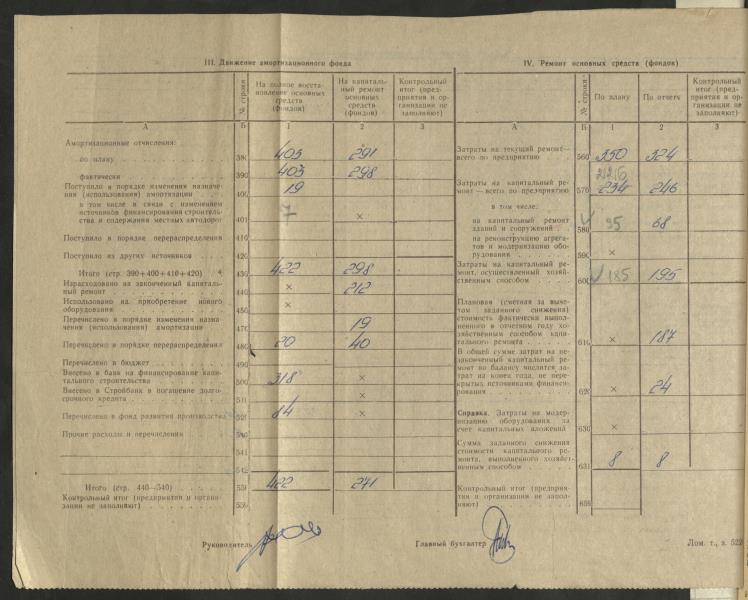 III. Движение амортизационного фонда
№ строки
На полное восста-
новление основных
средств
(фондов)
На капиталь-
ный ремонт
основных
средств
(фондов)
Контрольный
итог (пред-
приятия и ор-
ганизации не
заполняют)
А Б 1 2 3
Амортизационные отчисления:
по плану 380 405 291
фактически 390 403 298
Поступило в порядке изменения назначе-
ния (использования) амортизации 400 19
в том числе в связи с изменением
источников финансирования строитель-
ства и содержания местных автодорог 401 ×
Поступило в порядке перераспределения 410
Поступило из других источников 420
Итого (стр. 390+400+410+420) 430 422 298
Израсходовано на законченный капиталь-
ный ремонт 440 × 212
Использовано на приобретение нового
оборудования 450 ×
Перечислено в порядке изменения назна-
чения (использования) амортизации 470 19
Перечислено в порядке перераспределения 480 20 40
Перечислено в бюджет 490
Внесено в банк на финансирование капи-
тального строительства 500 318 ×
Внесено в Стройбанк в погашение долго-
срочного кредита ×
Перечислено в фонд развития производства 520 84 ×
Прочие расходы и перечисления
542
Итого (стр. 440—540) 550 422 271
Контрольный итог (предприятия и органи-
зации не заполняют)
IV. Ремонт основных средств (фондов)
№ строки
По плану
По отчету
Контрольный
итог (пред-
приятия и ор-
ганизации не
заполняют)
А Б 1 2 3
Затраты на текущий ремонт—
всего по предприятию 560 350 324
Затраты на капитальный ре-
монт—всего по предприятию 570 234 246
в том числе:
на капитальный ремонт
зданий и сооружений 580 95 68
на реконструкцию агрега-
тов и модернизацию обо-
рудования ×
Затраты на капитальный ре-
монт, осуществленный хозяй-
ственным способом 600 185 195
Плановая (сметная за выче-
том заданного снижения)
стоимость фактически выпол-
ненного в отчетном году хо-
зяйственным способом капи-
тального ремонта 610 × 187
В общей сумме затрат на не-
законченный капитальный ре-
монт по балансу числится за-
трат на конец года, не пере-
крытых источниками финанси-
рования 620 × 24
Справка. Затраты на модер-
низацию оборудования за
счет капитальных вложений 630 ×
Сумма заданного снижения
стоимости капитального ре-
монта, выполненного хозяйст-
венным способом 631 8 8
Контрольный итог (предприя-
тия и организации не запол-
няют)
Руководитель
Главный бухгалтер
Лом. т., з. 522